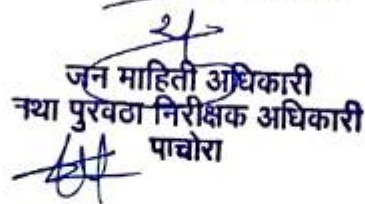 जन माहिती अधिकारी
नथा पुरवठा निरीक्षक अधिकारी
पाचोरा